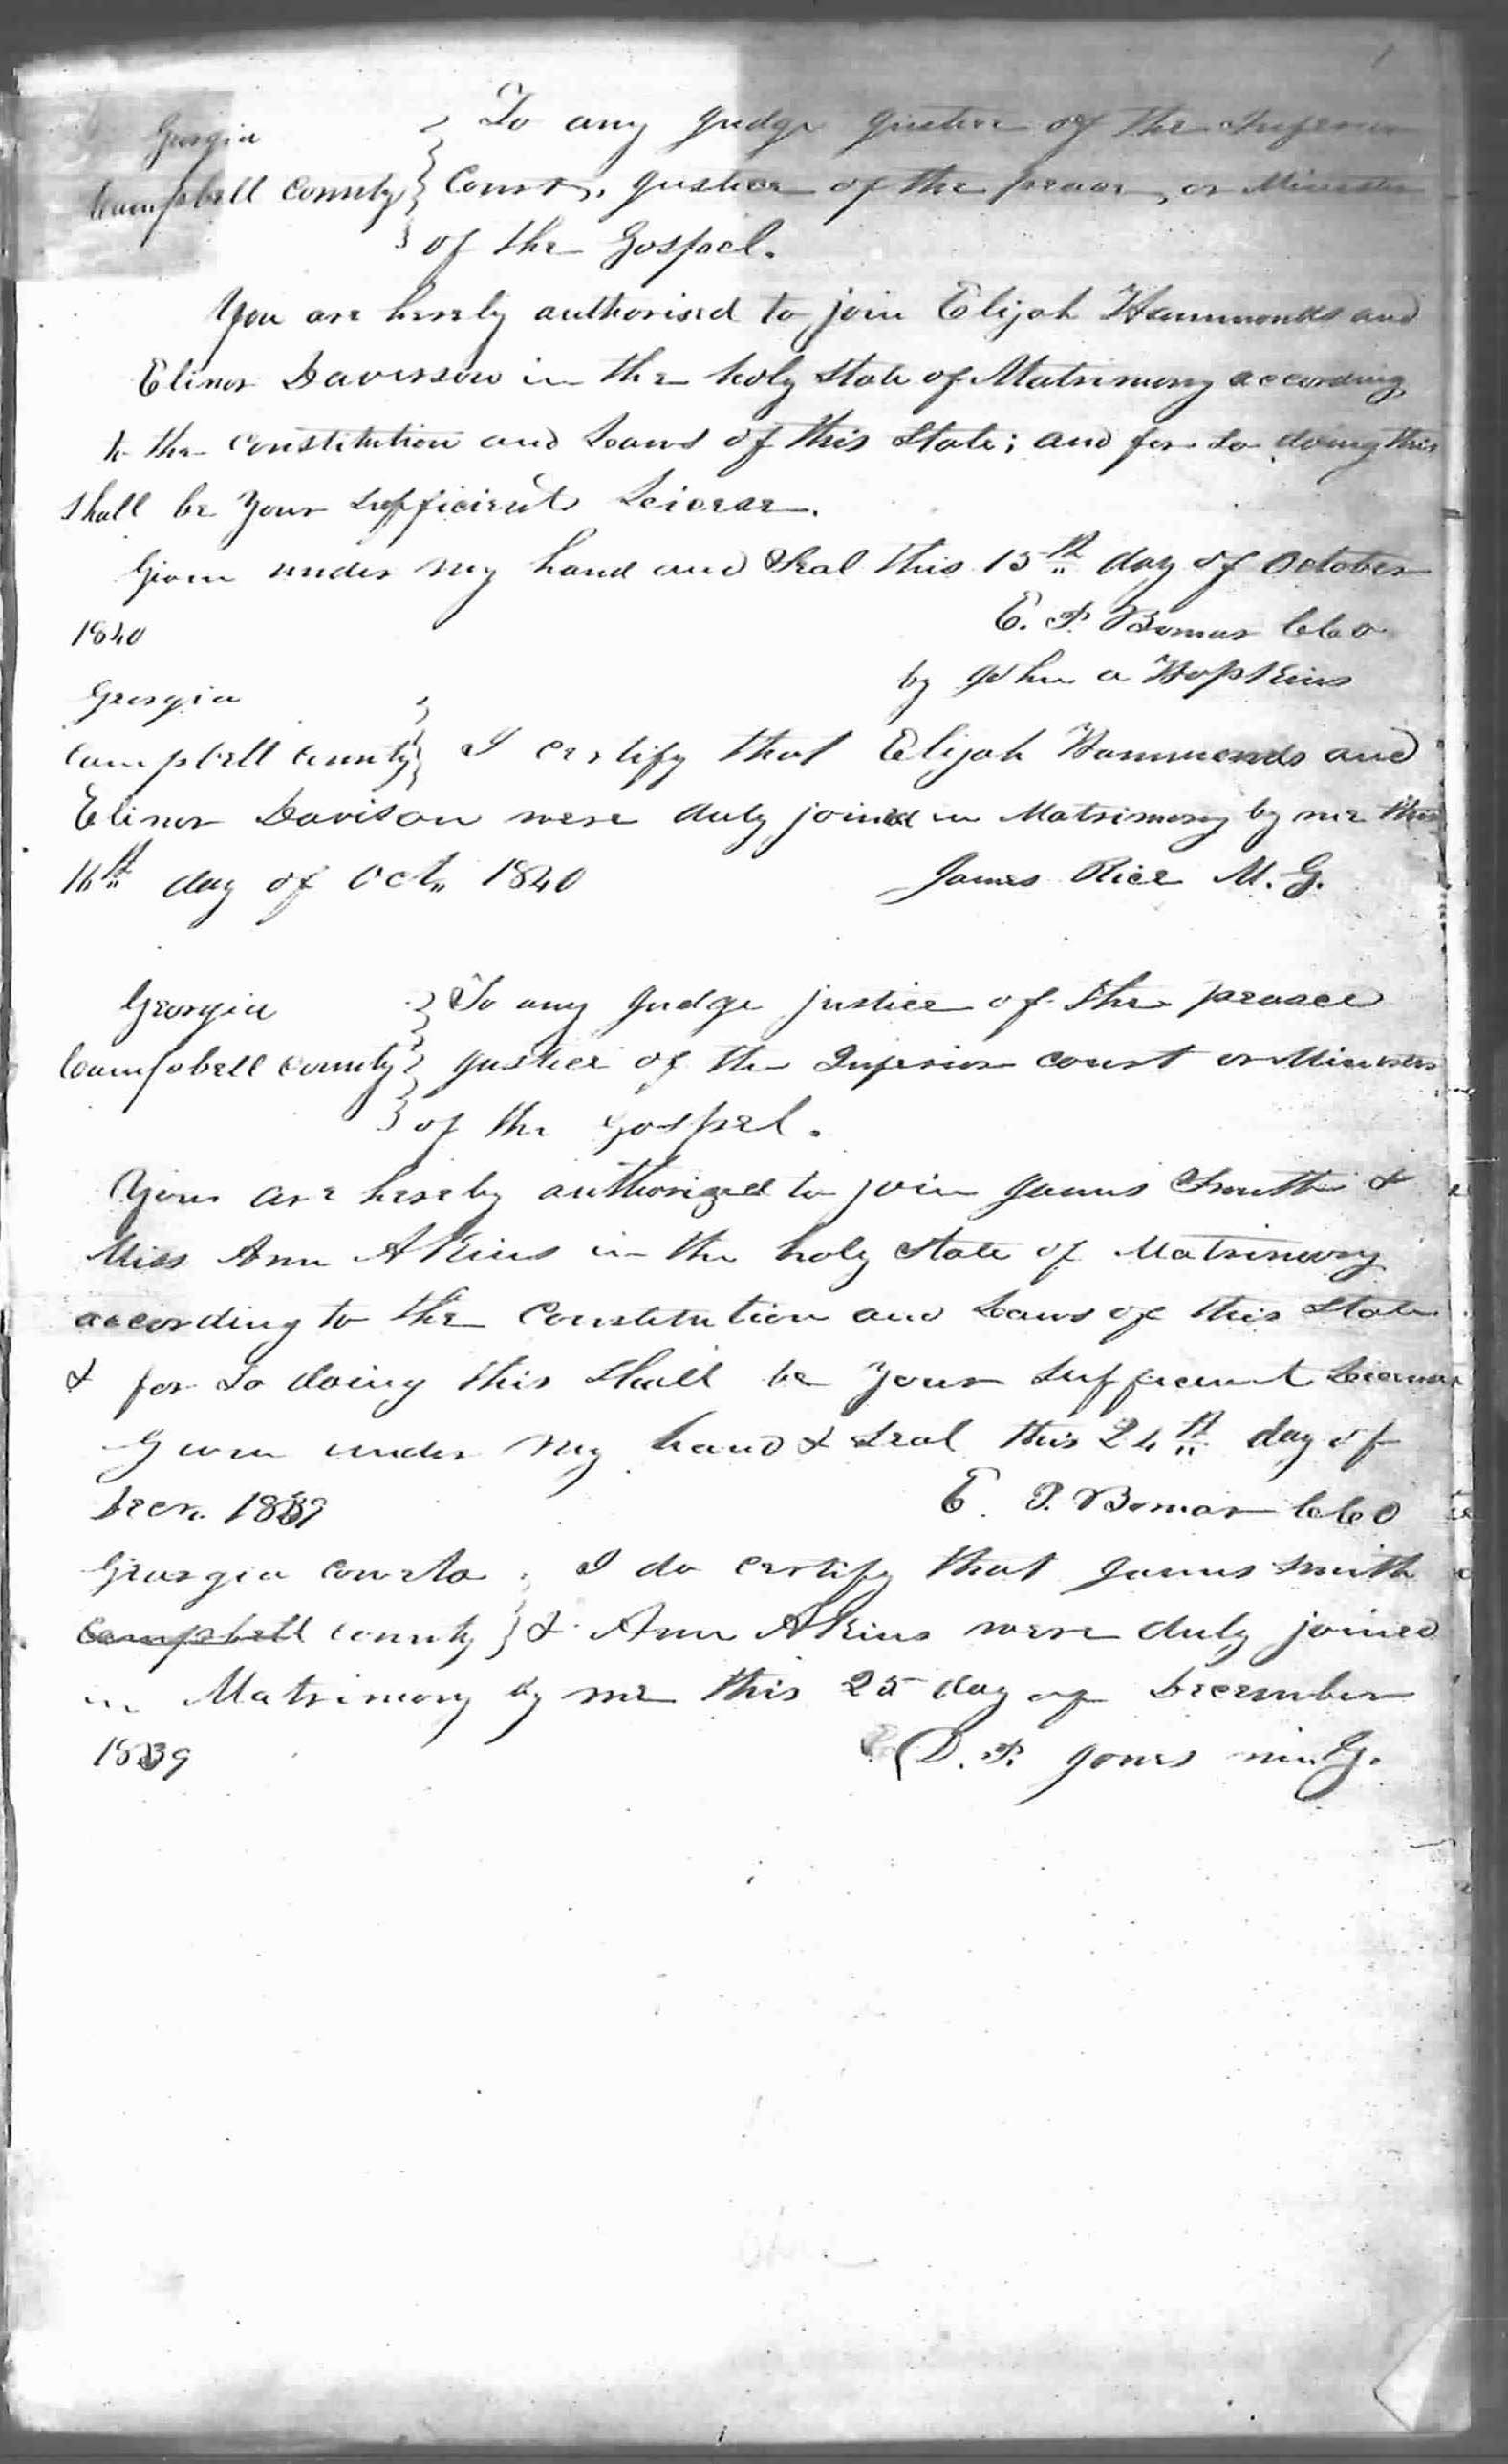 Georgia } To any Judge Justice of the Inferior
Campbell County } Court, Justice of the peace, or Minister
} of the Gospel.
You are hereby authorised to join Elijah Hammonds and
Elinor Davisson in the holy state of Matrimony according
to the Constitution and Laws of this State; and for so doing this
shall be your sufficient License.
Given under my hand and Seal this 15th day of October
1840
E. P. Bomar CCO
by John A Hopkins
Georgia
Campbell County } I certify that Elijah Hammonds and
Elinor Davison were duly joined in Matrimony by me this
16th day of Oct. 1840 James Rice M. G.
Georgia } To any Judge justice of the peace
Campbell County } Justice of the Inferior court or Minister
} of the Gospel.
You are hereby authorized to join James Smith &
Miss Ann Akins in the holy state of Matrimony
according to the Constitution and Laws of this State
& for so doing this shall be your sufficient License
Given under my hand & seal this 24th day of
Decr. 1839 E. P. Bomar CCO
Georgia Coweta } I do certify that James Smith
Campbell County } & Ann Akins were duly joined
in Matrimony by me this 25 day of December
1839 D. P. Jones min. G.